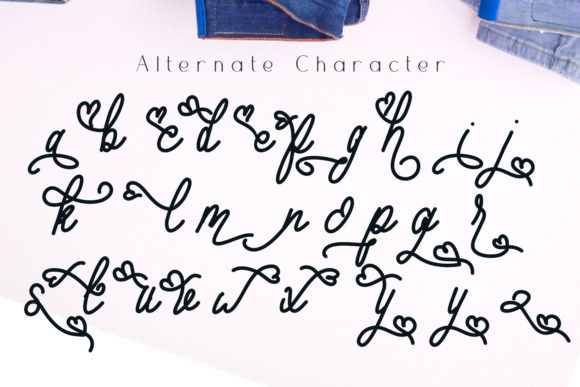 Alternate Character
a b c d e f g h i j
k l m n o p q r
s t u v w x y y z